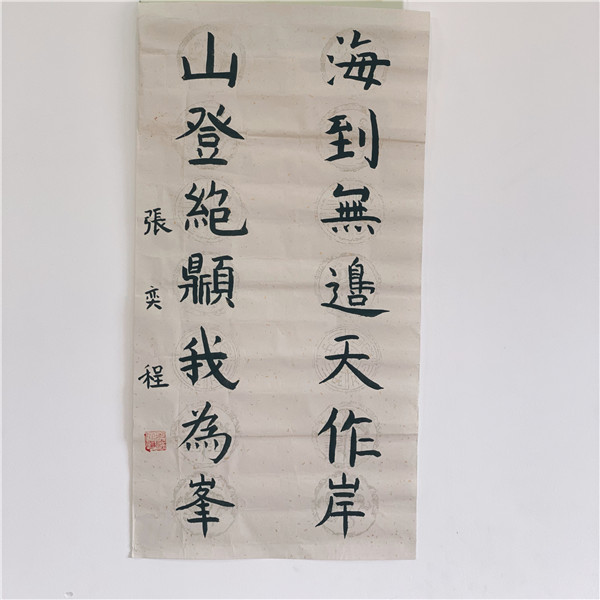 海到無邉天作岸
山登絶顥我為峯
張奕程